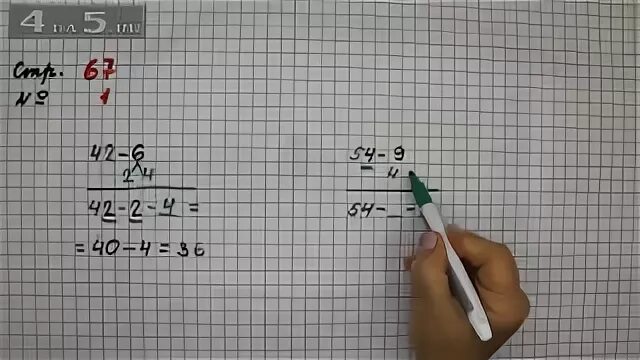 4 на 5.ru
Стр. 67
№ 1
42-6
2 4
42-2-4=
=40-4=36
54-9
4
54-_-